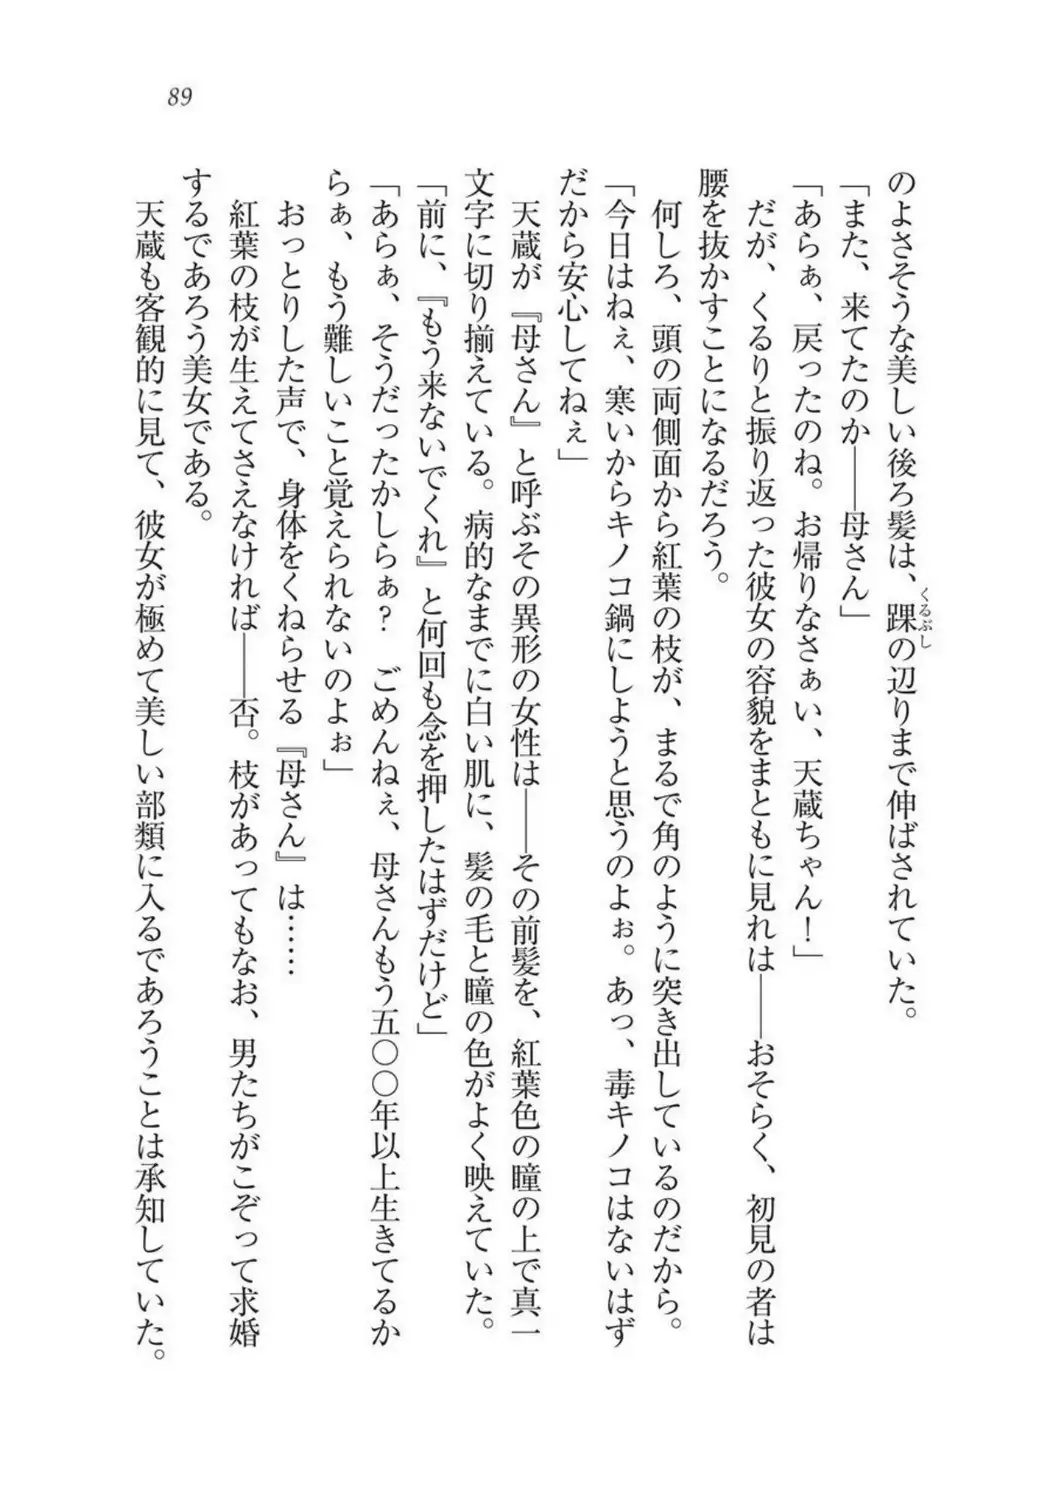 89
のよさそうな美しい後ろ髪は、踝の辺りまで伸ばされていた。
くるぶし
「また、来てたのか――母さん」
「あらぁ、戻ったのね。お帰りなさぁい、天蔵ちゃん！」
だが、くるりと振り返った彼女の容貌をまともに見れば――おそらく、初見の者は
腰を抜かすことになるだろう。
何しろ、頭の両側面から紅葉の枝が、まるで角のように突き出しているのだから。
「今日はねぇ、寒いからキノコ鍋にしようと思うのよぉ。あっ、毒キノコはないはず
だから安心してねぇ」
天蔵が『母さん』と呼ぶその異形の女性は――その前髪を、紅葉色の瞳の上で真一
文字に切り揃えている。病的なまでに白い肌に、髪の毛と瞳の色がよく映えていた。
「前に、『もう来ないでくれ』と何回も念を押したはずだけど」
「あらぁ、そうだったかしらぁ？　ごめんねぇ、母さんもう五〇〇年以上生きてるか
らぁ、もう難しいこと覚えられないのよぉ」
おっとりした声で、身体をくねらせる『母さん』は……
紅葉の枝が生えてさえなければ――否。枝があってもなお、男たちがこぞって求婚
するであろう美女である。
天蔵も客観的に見て、彼女が極めて美しい部類に入るであろうことは承知していた。